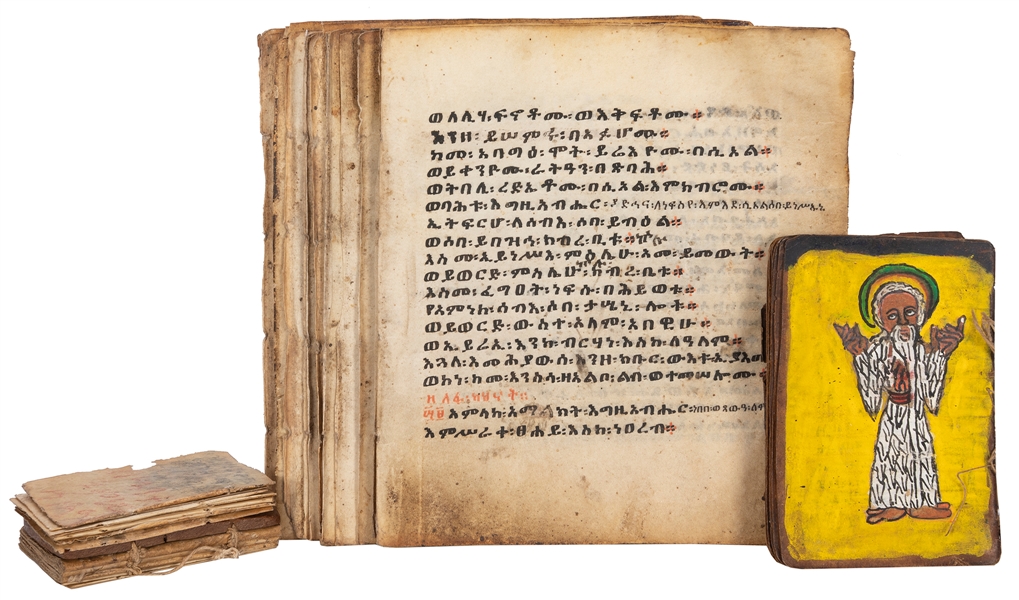 ወለሊሃ፡ፍኖቶሙ፡ወእቅፍቶሙ።
እንዘ፡ይሠምሩ፡በአፉሆሙ።
ከመ፡አባግዕ፡ሞት፡ይሬእዮሙ፡በሲኦል።
ወይቀንዮሙ፡ራትዓን፡በጽባሕ።
ወትበሊ፡ረድኤቶሙ፡በሲኦል፡እምክብሮሙ።
ወባሕቱ፡እግዚአብሔር፡ያድኅና፡ለነፍስየ፡እምእደ፡ሲኦል፡ሶበ፡ይነሥኡኒ
ኢትፍርሆ፡ለሰብእ፡ሶበ፡ይብዕል።
ወሶበ፡ይበዝኅ፡ክብረ፡ቤቱ።
እስመ፡ኢይነሥእ፡ምስሌሁ፡አመ፡ይመውት።
ወይወርድ፡ምስሌሁ፡ክብረ፡ቤቱ።
እስመ፡ፈግዐት፡ነፍሱ፡በሕይወቱ።
የአምነከ፡ሰብእ፡ሶበ፡ታሤኒ፡ሎቱ።
ወይወርድ፡ውስተ፡ዓለም፡አበዊሁ።
ወኢይሬኢ፡እንከ፡ብርሃነ፡እስከ፡ለዓለም።
እጓለ፡እመሕያውሰ፡እንዘ፡ክቡር፡ውእቱ፡ኢያእመ
ወኮነ፡ከመ፡እንስሳ፡ዘአልቦ፡ልብ፡ወተመሠሎሙ።
አምላከ፡አማልክት፡እግዚአብሔር፡ነበበ፡ወጸውዓ፡ለም
እምሥራቀ፡ፀሐይ፡እስከ፡ነዐረብ።